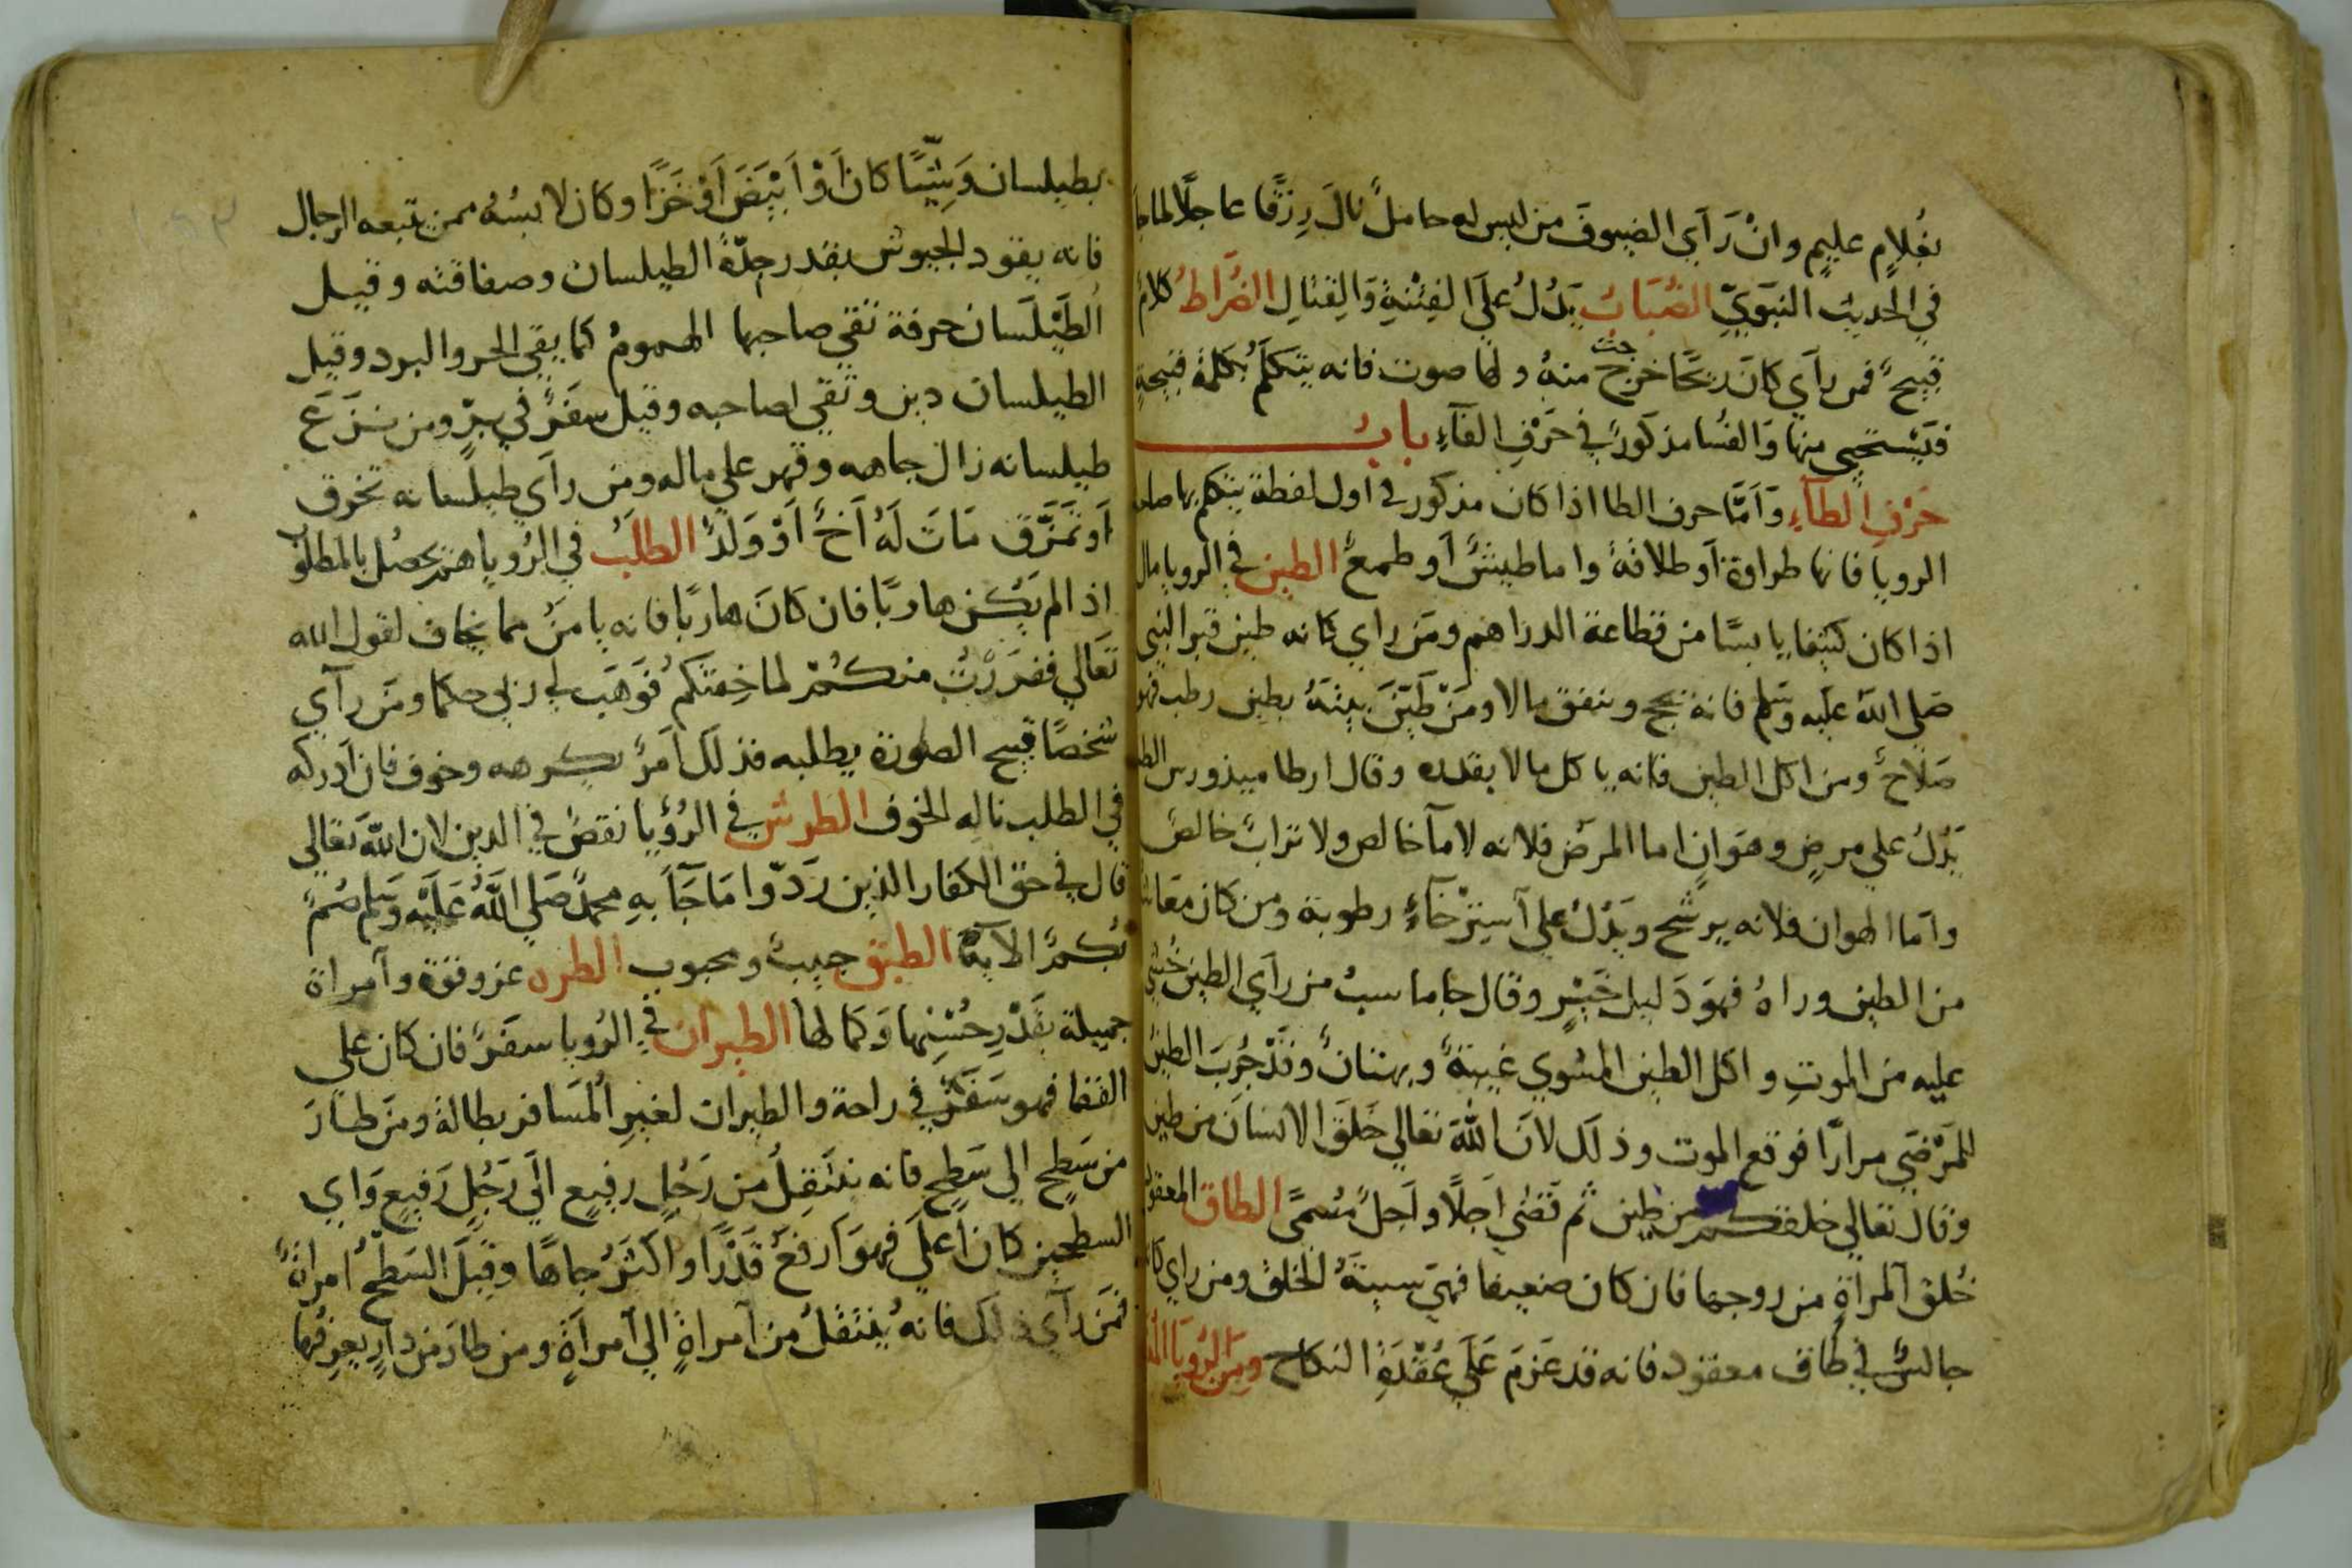 بغُلامٍ عليمٍ وانْ رَآى الضيوفَ من ليس له حاملٌ نالَ رِزقًا عاجلًا لما جا
في الحديث النبَوِيّ الضَبَابُ يَدُلُ عَلَي الفِتْنةِ وَالِقتالِ الضُرَاطُ كلامٌ
قبيحٌ فمن رآي كانَ ريحًا خرجت منهُ ولها صوت فانه يتكلمُ بكلمةٍ قبيحةٍ
فيَسْتحيي منها وَالفُسا مذكورٌ في حَرْفِ الفآءِ بابُ
حَرْفِ الطآءِ وَاَمَّا حرف الطا اذا كان مذكور في اول لفظة يتكلم بها صاحب
الرويا فانها طراوة اَو طلاقةٌ واما طيشٌ اَو طمعٌ الطين في الرويا مال
اذا كان كثيفا يابسًا من قطاعة الدراهم ومَن راي كانه طين قبر النبي
صَلي اللهُ عليه وسَلم فانه يحج وينفق مالا ومَنْ طَيَّنَ بيتَهُ بطين رطب فهو
صَلاحٌ ومن اكل الطين فانه ياكل مالا بقدره وقال ارطاميدورس الطين
يَدُلُ علي مرضٍ وهَوَانٍ اما المرَض فلانه لا مآ خالص ولا ترابٌ خالصٌ
واَما الهوان فلانه يرشح ويَدُلُ علي اَسِترْخآءِ رطوبة ومن كان معَاشه
من الطين وراهُ فهوَ دَليل خَيْرٍ وقال جاماسبُ من رآي الطين خُشِي
عليه من الموتِ واكل الطين المشوي غيبةٌ وبهتنانٌ وقَدْ جُرِبَ الطين
للمَرْضَي مرارًا فوقع الموت وذلك لانَ اللهَ تعالي خَلقَ الانسانَ من طين
وقال تعالي خلقكم من طين ثم قَضَي اَجلًا واَجلٌ مُسمًي الطاق المعقود
خُلق المراةِ من زوجها فان كان ضعيفا فهيَ سيئةُ الخلق ومن راي كانه
جالسٌ في طاق معقود فانه قد عَزمَ عَلَي عُقْدَةِ النكاح ومن الرُويا
بطيلسان وَيَثِيًا كان اَوْ اَبْيَضَ اَوْ خَزًا وكان لابسُهُ ممن تتبعه الرجال
فانه يقود الجيوش بقدر جِدّةِ الطيلسان وصفاقته وقيل
الطَيْلَسان حرفة تقي صاحبها الهمومُ كما يقي الحر والبرد وقيل
الطيلسان دين وتُقي لصاحبه وقيل سفرٌ في بِرٍ ومن نَزَعَ
طيلسانه زال جاهه وقهر علي ماله ومن رآي طيلسانه تخرق
اَو تمَزَّق مَاتَ لَهُ اَخٌ اَوْ وَلَدٌ الطلَبُ في الرُويا هَم يحصُل بالمطلوب
اذا لم يَكن هاربًا فان كانَ هاربًا فانه يامَنُ مما يخاف لقول الله
تعَالي ففرَرْتُ منكُمْ لما خِفتكم فوَهَب لي ربي حكما ومَن رآي
شخصًا قبيح الصُورَة يطلبه فذلك اَمرٌ يكرهه وخوف فان اَدركه
في الطلب ناله الخوف الطرش في الرُؤيا نقصٌ في الدين لان اللهَ تعَالي
قال في حق الكفار الذين رَدّوا مَا جَآ بهِ محمدٌ صَلي اللهُ عَلَيْه وسَلم صُمٌ
بُكمٌ الآيةَ الطبق حبيبٌ ومحبوب الطره عز وقوة وآمراة
جميلة بقَدْرِ حُسْنِها وَكمالها الطيران في الرُويا سفَرٌ فان كان علي
القفا فهو سَفَرٌ في راحة والطيران لغيرِ المُسَافر بطالة ومَن طارَ
من سَطحٍ الي سَطحٍ فانه ينتَقِلُ من رَجُلٍ رفيعٍ الَي رَجُلٍ رَفيعٍ وَاي
السطحين كان اَعلي فهوَ اَرفعٌ قَدْرًا واكثرُ جاهًا وقيلَ السَطحُ امراةٌ
فمَن رآي ذلك فانهُ ينتَقلُ من اَمراةٍ الي اَمراَةٍ ومن طارَ من دارٍ يعرِفُها